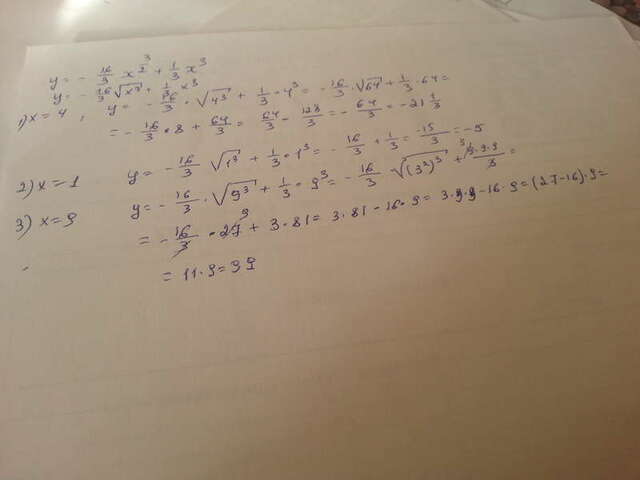 y = - 16/3 x^(3/2) + 1/3 x^3
y = - 16/3 √(x^3) + 1/3 x^3
1) x = 4, y = - 16/3 · √(4^3) + 1/3 · 4^3 = - 16/3 · √64 + 1/3 · 64 =
= - 16/3 · 8 + 64/3 = 64/3 - 128/3 = - 64/3 = -21 1/3
2) x = 1 y = - 16/3 √(1^3) + 1/3 · 1^3 = - 16/3 + 1/3 = -15/3 = -5
3) x = 9 y = - 16/3 · √(9^3) + 1/3 · 9^3 = - 16/3 √((3^2)^3) + 9·9·9/3 =
= - 16/3 · 27 + 3·81 = 3·81 - 16·9 = 3·9·9 - 16·9 = (27-16)·9 =
= 11·9 = 39